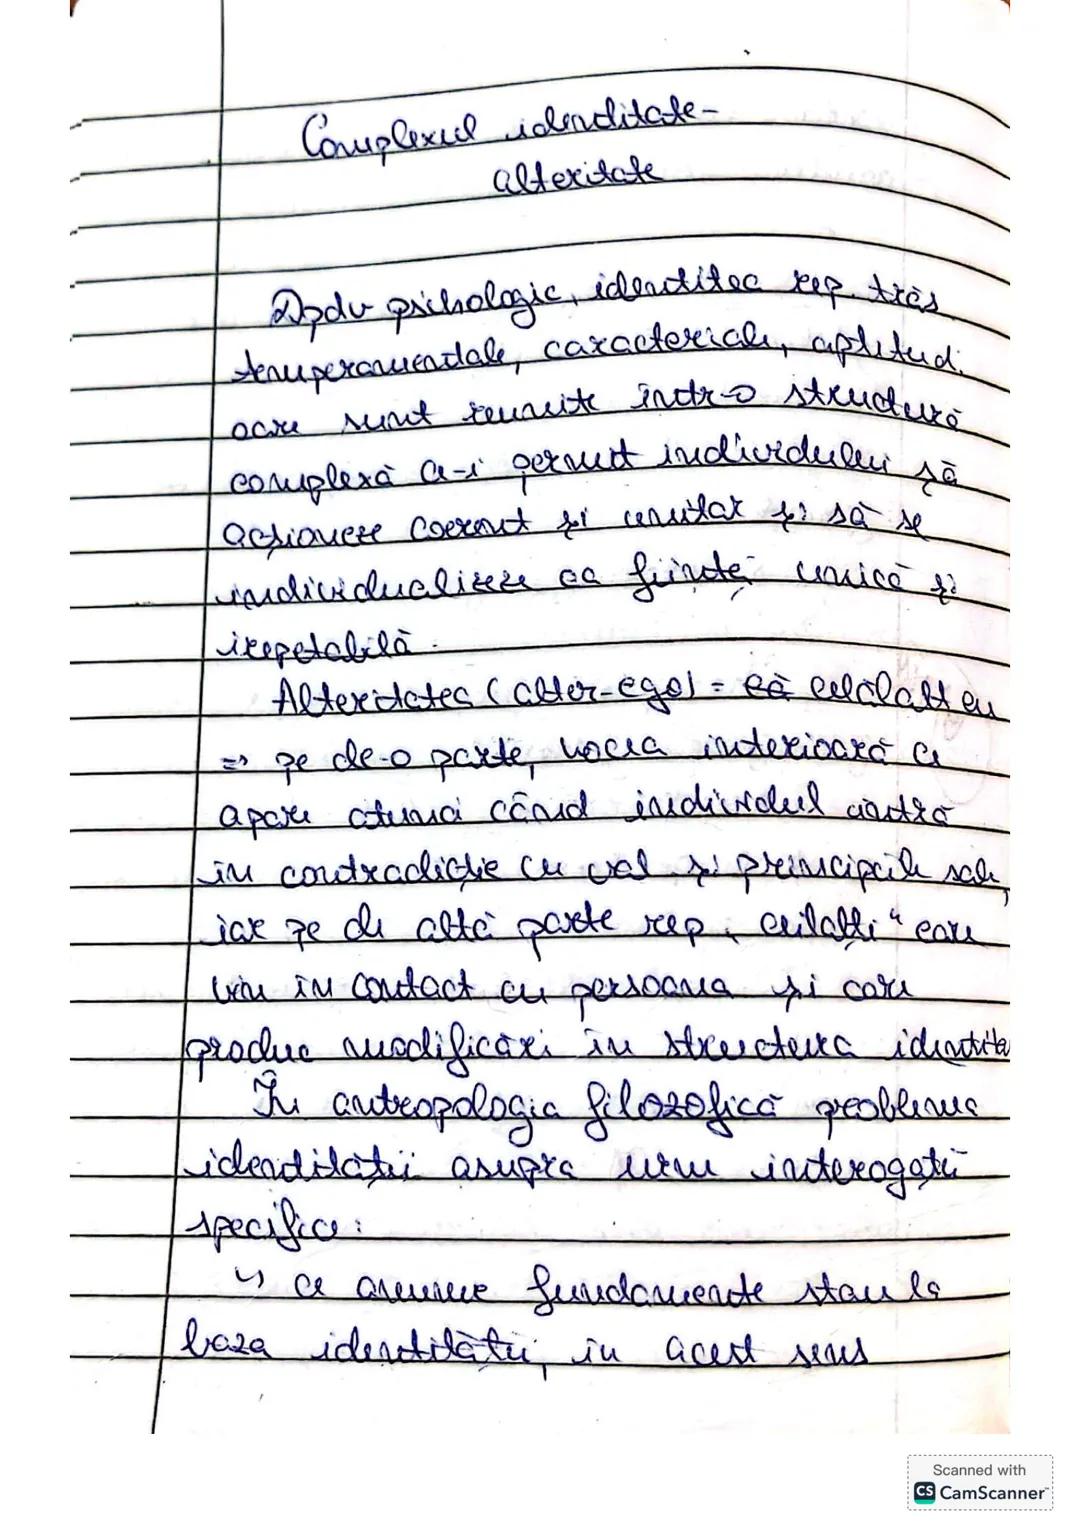 Complexul identitate-
alteritate
Dpdv psihologic, identitea rep. trăs.
temperamentale, caracteriale, aptitud.
care sunt reunite într-o structură
complexă ce-i permit individului să
acționeze coerent și unitar și să se
individualizeze ca ființă unică și
irepetabilă.
Alteritatea (alter-ego) = celălalt eu
=> pe de-o parte, vocea interioară ce
apare atunci când individul intră
în contradicție cu val și principiile sale,
iar pe de altă parte rep. „ceilalți" care
vin în contact cu persoana și care
produc modificări în structura identita
În antropologia filozofică problema
identității asupra unui interogații
specifice:
↳ ce anume fundamente stau la
baza identității, în acest sens
Scanned with
CS CamScanner